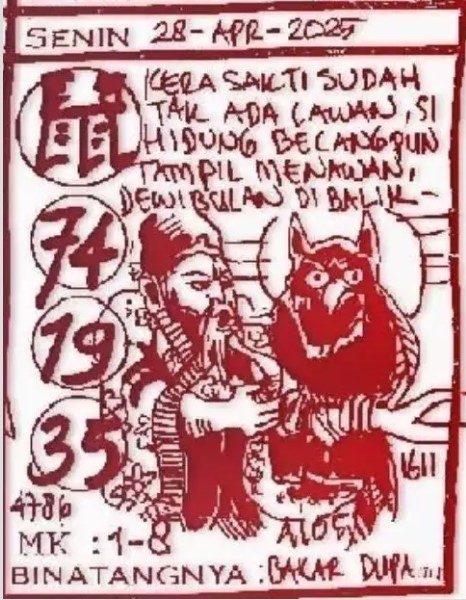 SENIN 28-APR-2025
鼠
KERA SAKTI SUDAH
TAK ADA LAWAN, SI
HIDUNG BECANGPUN
TAMPIL MENAWAN,
DEWI BULAN DI BALIK-
74
19
35
1611
4786
MK : 1-8
BINATANGNYA : BAKAR DUPA